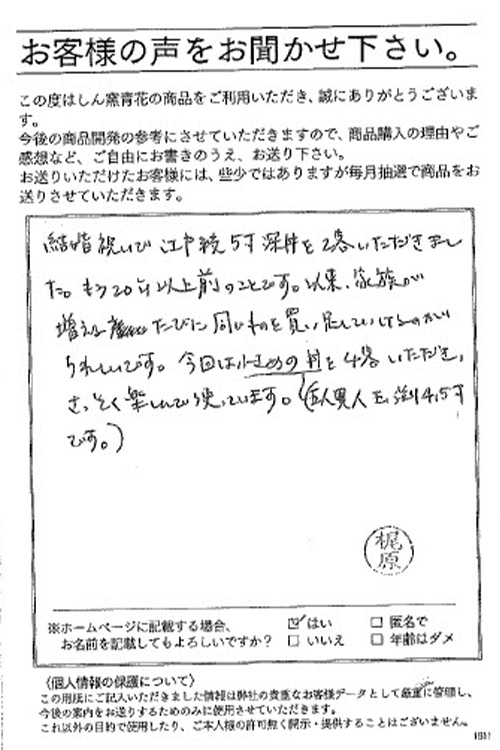 お客様の声をお聞かせ下さい。
この度はしん窯青花の商品をご利用いただき、誠にありがとうございま
す。
今後の商品開発の参考にさせていただきますので、商品購入の理由やご
感想など、ご自由にお書きのうえ、お送り下さい。
お送りいただけたお客様には、些少ではありますが毎月抽選で商品をお
送りさせていただきます。
結婚祝いで 5寸深丼を2客いただきまし
た。もう20年以上前のことです。以来、家族が
増えるたびに同じものを買い足していけるのが
うれしいです。今回は小さめの丼を4客いただき、
さっそく楽しんで使っています。(異人 4.5寸
です。)
梶原
※ホームページに記載する場合、 ☑はい □匿名で
お名前を記載してもよろしいですか? □いいえ □年齢はダメ
〈個人情報の保護について〉
この用紙にご記入いただきました情報は弊社の貴重なお客様データとして厳重に管理し、
今後の案内をお送りするためのみに使用させていただきます。
これ以外の目的で使用したり、ご本人様の許可無く開示・提供することはございません。